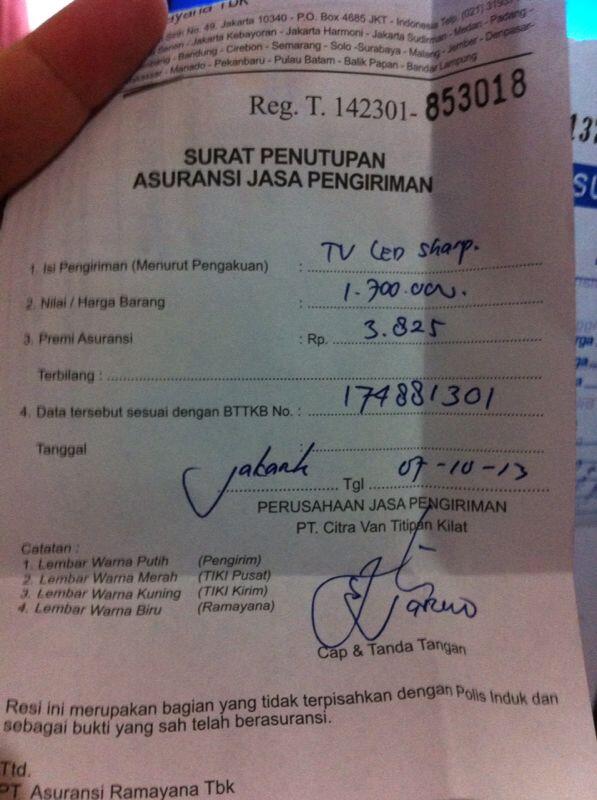 ayana Tbk
No. 49, Jakarta 10340 - P.O. Box 4685 JKT - Indonesia Telp. (021)
/ Jakarta Kebayoran - Jakarta Harmoni - Jakarta Sudirman - Medan - Padang -
- Bandung - Cirebon - Semarang - Solo -Surabaya - Malang - Jember - Denpasar-
- Manado - Pekanbaru - Pulau Batam - Balik Papan - Bandar Lampung
Reg. T. 142301- 853018
SURAT PENUTUPAN
ASURANSI JASA PENGIRIMAN
1. Isi Pengiriman (Menurut Pengakuan) : TV LED Sharp.
2. Nilai / Harga Barang : 1.700.000.
3. Premi Asuransi : Rp. 3.825
Terbilang :
4. Data tersebut sesuai dengan BTTKB No. : 174881301
Tanggal :
Jakarta Tgl 07-10-13
PERUSAHAAN JASA PENGIRIMAN
PT. Citra Van Titipan Kilat
Catatan :
1. Lembar Warna Putih (Pengirim)
2. Lembar Warna Merah (TIKI Pusat)
3. Lembar Warna Kuning (TIKI Kirim)
4. Lembar Warna Biru (Ramayana)
Cap & Tanda Tangan
Resi ini merupakan bagian yang tidak terpisahkan dengan Polis Induk dan
sebagai bukti yang sah telah berasuransi.
Ttd.
PT. Asuransi Ramayana Tbk